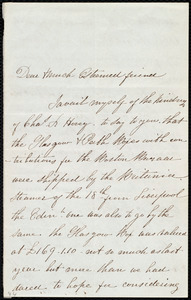 Dear much Esteemed friend
I avail myself of the kindness
of Chas. to day to you, that
the Glasgow & Perth Boxes with con-
tributions for the Boston Bazaar
were shipped by the
Steamer of the 18th from Liverpool
the Eden. one was also to go by the
same. the Glasgow Box was valued
at £169.1.10 not so much as last
year but more than we had
dared to hope for considering